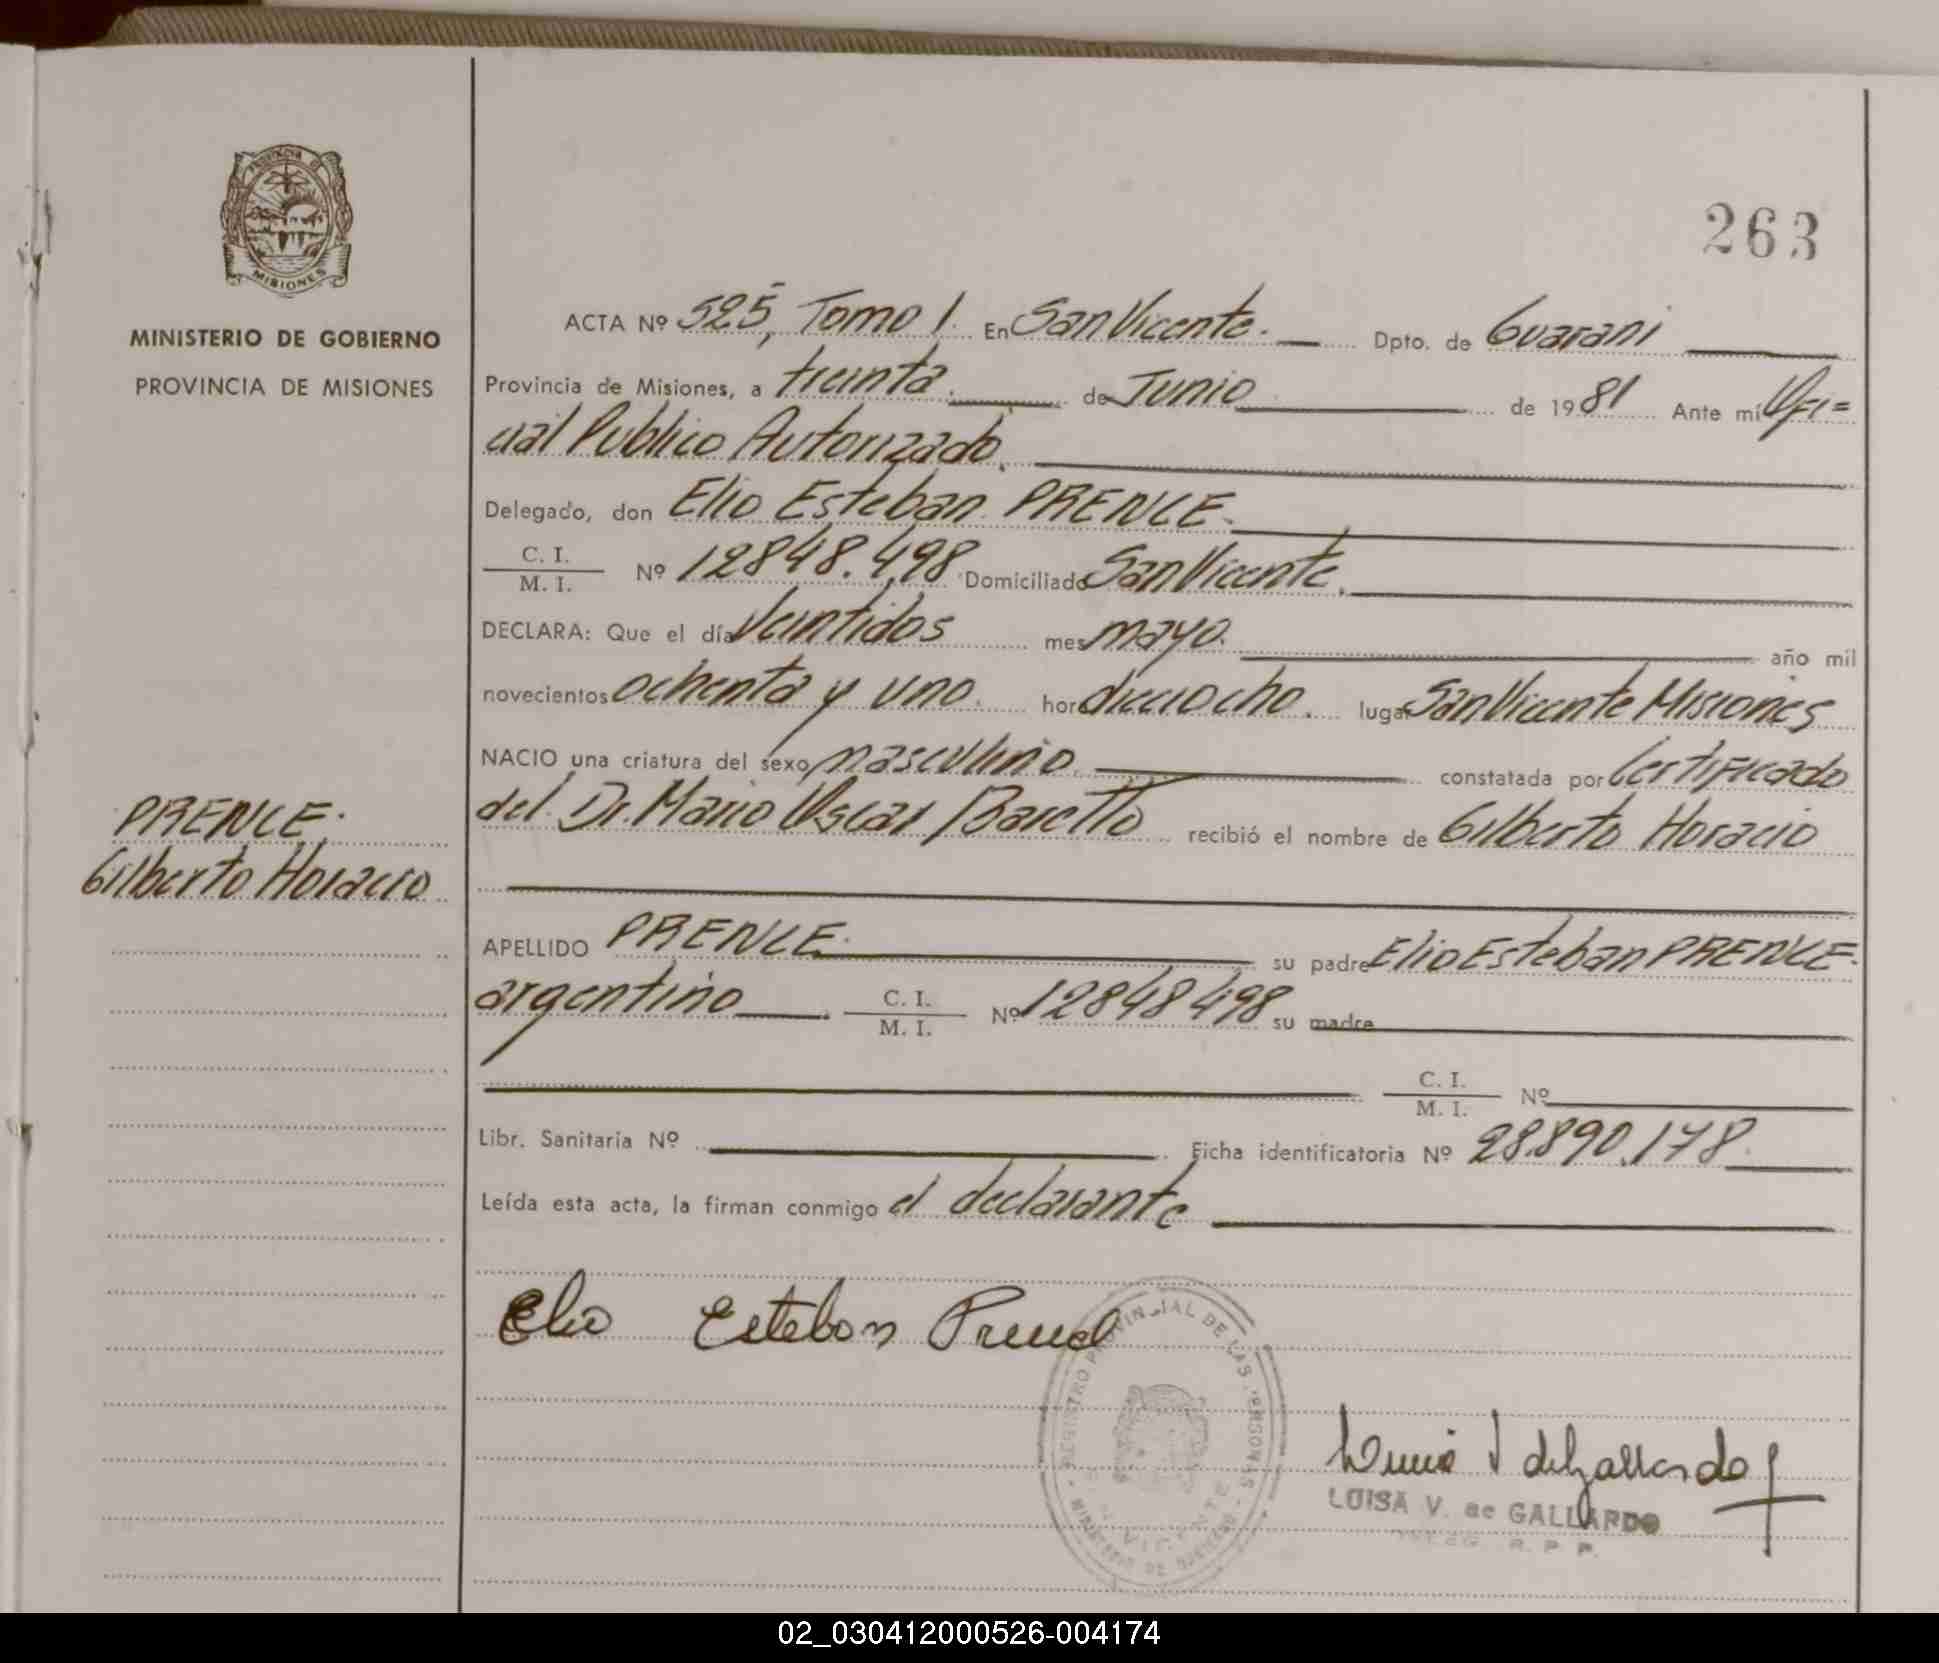 263
PROVINCIA DE
MISIONES
MINISTERIO DE GOBIERNO
PROVINCIA DE MISIONES
PRENCE.
Gilberto Horacio
ACTA Nº 525, Tomo I. En San Vicente. Dpto. de Guarani
Provincia de Misiones, a treinta. de Junio de 1981 Ante mí Ofi=
cial Publico Autorizado.
Delegado, don Elio Esteban PRENCE.
C. I.
M. I. Nº 12848.498 Domiciliado San Vicente.
DECLARA: Que el día Veintidos mes mayo. año mil
novecientos ochenta y uno. hora dieciocho. lugar San Vicente Misiones
NACIO una criatura del sexo masculino. constatada por Certificado
del Dr. Mario Oscar recibió el nombre de Gilberto Horacio
APELLIDO PRENCE. su padre Elio Esteban PRENCE.
argentino C. I.
M. I. Nº 12848498 su madre
C. I.
M. I. Nº
Libr. Sanitaria Nº Ficha identificatoria Nº 28.890.178
Leída esta acta, la firman conmigo el declarante
Elio Esteban Prence
REGISTRO PROVINCIAL DE LAS PERSONAS
MINISTERIO DE GOBIERNO
VICENTE
LUISA V. de GALLARDO
R. P. P.
02_030412000526-004174